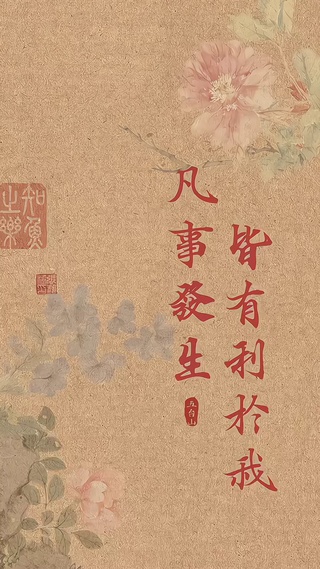 凡事發生
皆有利於我
五台山
知魚之樂